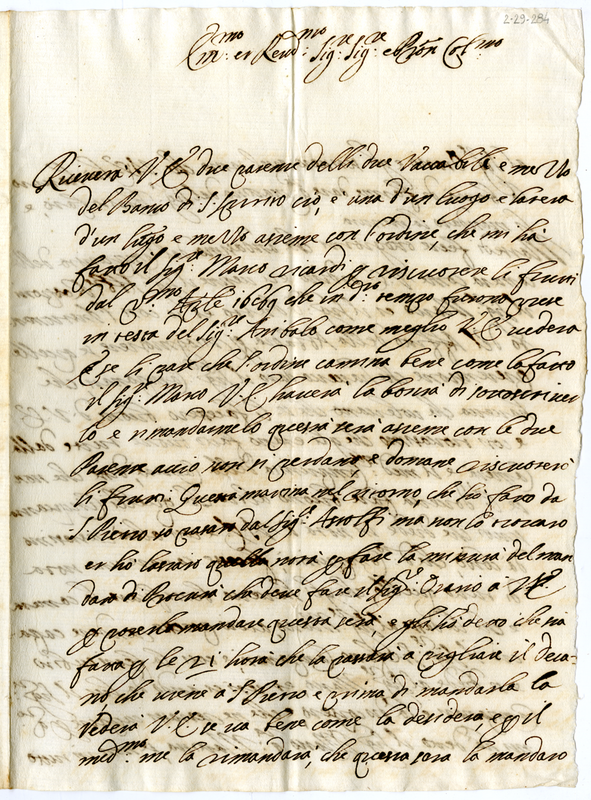 2-29-284
Ill.mo et Rend.mo Sig.re Sig.re e Pron Col.mo
Riceverà V.E. due patente delli due Vaccabili e mezzo
del Banco di S. Spirito ciò, è una d'un luogo e l'altra
d'un luogo e mezzo assieme con l'ordine, che mi hà
fatto il Sig.re Marco ricardi p riscuotere li frutti
dal p.mo Aple 1669 che in d.o tempo furono
in testa del Sig.re Anibalo come meglio V.E. vederà
E se li pare che l'ordine camina bene come lo fatto
il Sig.r Marco V.E. haverà la bontà di sottoscriver
lo e rimandarmelo questa sera assieme con le due
Patente acciò non si perdano, e domane riscuoterò
li frutti. Questa matina nel ritorno, che hò fatto da
S. Pietro io passato dal Sig.re Astolfi mà non lo trovato
et hò lasciato nota p fare la minuta del man
dato di Procura che deve fare il Sig.re Oratio a V.E.
p poterla mandare questa sera, e gli hò detto che sia
fatta p le 21 hora che la passarà a pigliare il deca-
no, che viene a S. Pietro e prima di mandarla la
Vederà V.E. se va bene come la desidera, e p il
med.mo me la rimandarà, che questa sera la mandarò